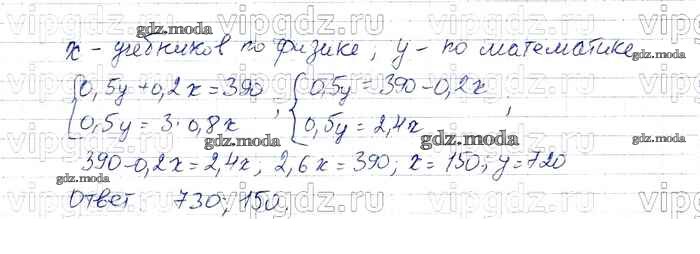 vipgdz.ru vipgdz.ru vipgdz.ru
gdz.moda gdz.moda gdz.moda
x - учебников по физике, y - по математике
{0,5y + 0,2x = 390 ; {0,5y = 390 - 0,2x
{0,5y = 3·0,8x {0,5y = 2,4x ,
gdz.moda gdz.moda gdz.moda
390 - 0,2x = 2,4x; 2,6x = 390; x = 150; y = 720
gdz.moda gdz.moda
Ответ 730; 150.
vipgdz.ru vipgdz.ru vipgdz.ru
gdz.moda gdz.moda